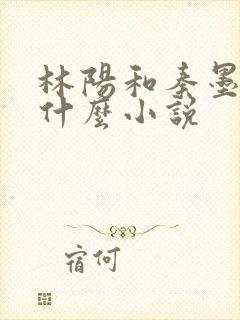 林陽和秦墨
什麼小説
宿何